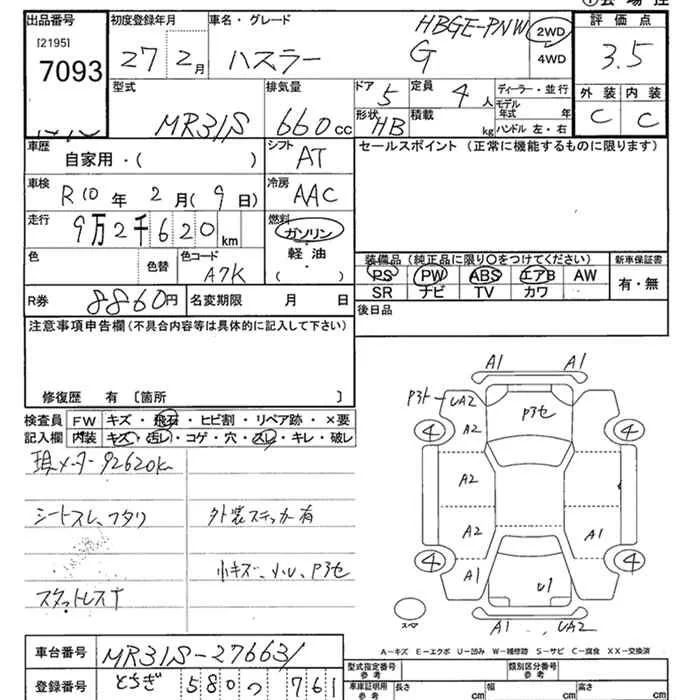 出品番号 [2195] 7093
初度登録年月 27年 2月
車名・グレード ハスラー HBGE-PNW G
2WD 4WD
評価点 3.5
外装 C 内装 C
型式 MR31S
排気量 660cc
ドア 5 形状 HB
定員 4人 積載 kg
ディーラー・並行
モデル年式 年
ハンドル 左・右
車歴 自家用・( )
シフト AT
セールスポイント (正常に機能するものに限ります)
車検 R10年 2月(9日)
冷房 AAC
走行 9万2千620km
燃料 ガソリン 軽油 ( )
色 色替 色コード A7K
装備品 (純正品に限り○をつけてください)
PS PW ABS エアB AW
SR ナビ TV カワ
新車保証書 有・無
R券 8860円 名変期限 月 日
後日品
注意事項申告欄(不具合内容等は具体的に記入して下さい)
修復歴 有 〔箇所 〕
検査員記入欄
FW キズ・飛石・ヒビ割・リペア跡・×要
内装 キズ・汚レ・コゲ・穴・スレ・キレ・破レ
現メーター92620k
シートスレ、フタリ
外装ステッカー有
小キズ、小U、P3セ
スタットレスT
A1 A1
P3ト UA2 P3セ
4 A2 4
A2
A2 A1
4 A1 U1 4
スペ A1 UA2
A-キズ E-エクボ U-凹み W-補修跡 S-サビ C-腐食 XX-交換済
車台番号 MR31S-276631
登録番号 とちぎ 580 つ 761
型式指定番号 参考
類別区分番号 参考
車庫証明用 参考 長さ cm 幅 cm 高さ cm